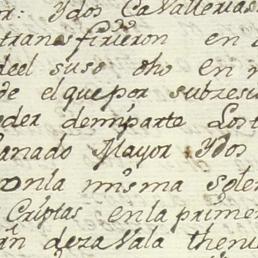 or: Ydos Cavallerias
transfirieron en d
deel suso dho en n
de el quepor subresu
oder demiparte Los t
Ganado Mayor Ydos
onla misma solen
Criptas enla primer
án deza Vala thenie